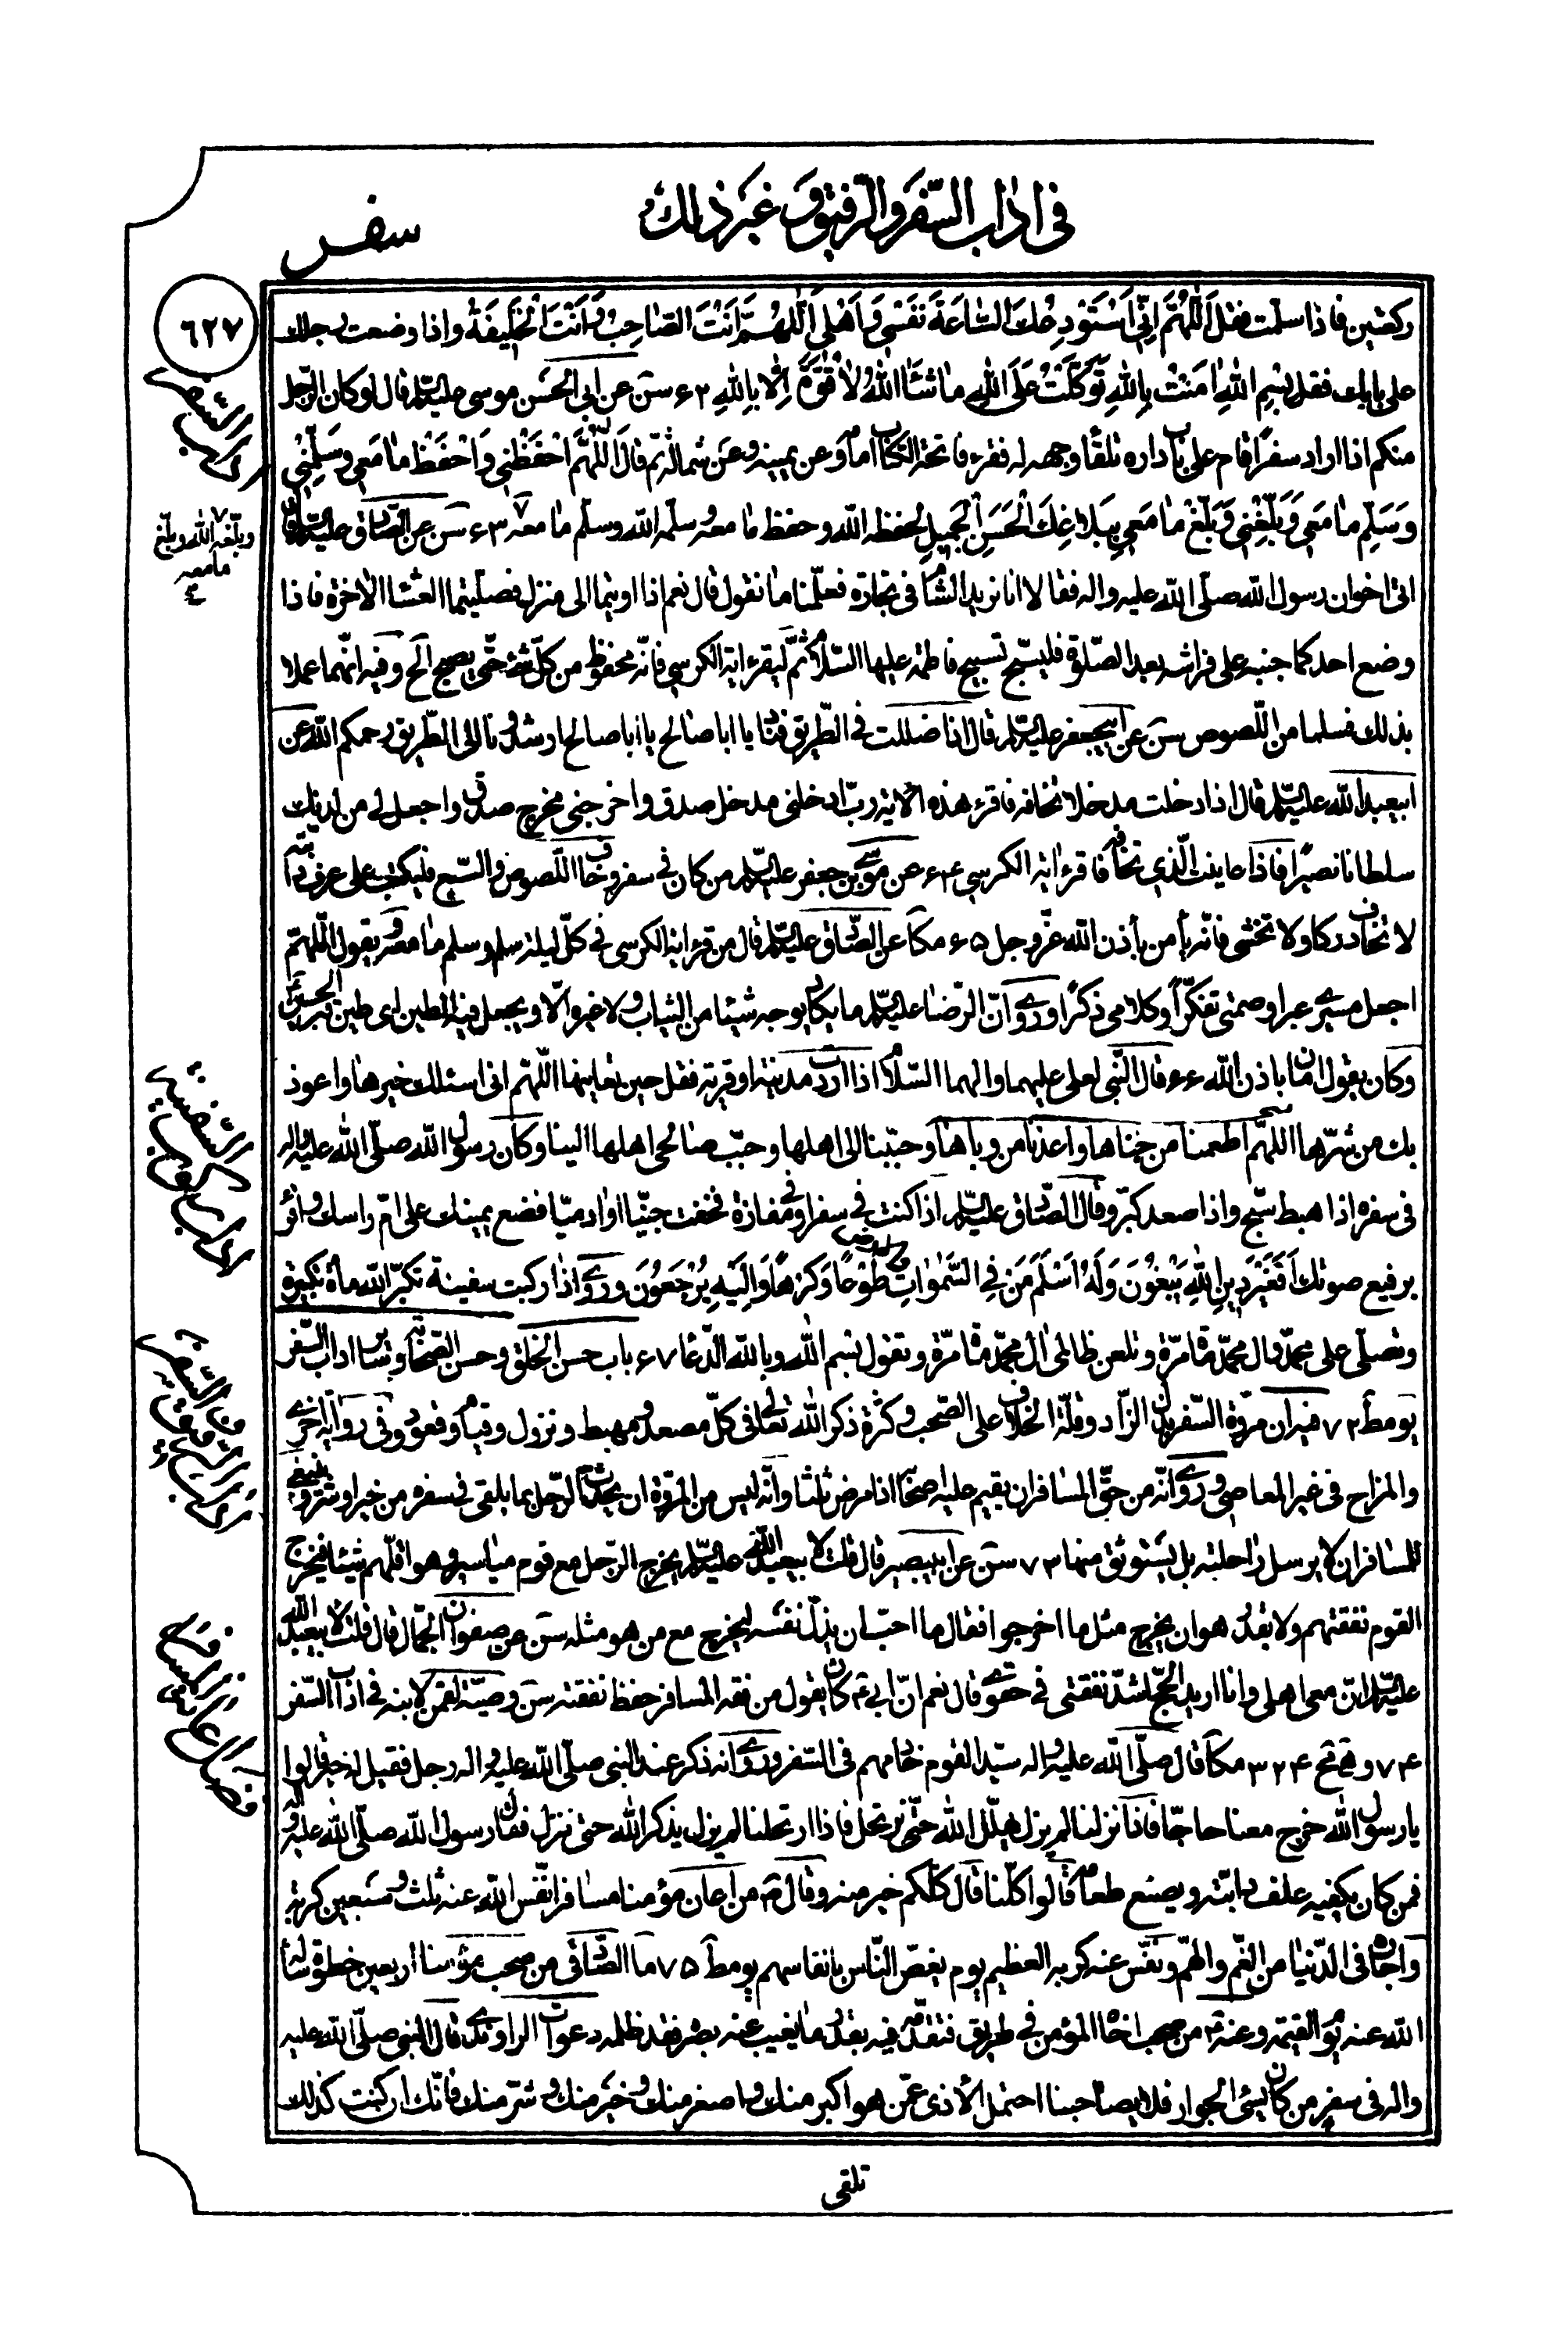 فى اداب السّفر والرّفيق و غير ذلك
سفر
٦٢٧
ركعتين فاذا سلمت فقل اَللّهُمَّ اِنّى اَسْتَوْدِعُكَ السّاعَةَ نَفْسى وَ اَهْلى اَللّهُمَّ اَنْتَ الصّاحِبُ وَ اَنْتَ الْخَليفَةُ واذا وضعت رجلك
على بابك فقل بِسْمِ اللهِ امَنْتُ بِاللهِ تَوَكَّلْتُ عَلَى اللهِ ما شاءَ اللهُ لا قُوَّةَ اِلّا بِاللهِ ۶۲ سن عن ابى الحسن موسى عليه السّلم قال لو كان الرّجل
منكم اذا اراد سفرًا قام على باب داره تلقاء وجهه له فقرء فاتحة الكتاب امامه وعن يمينه وعن شماله ثم قال اَللّهُمَّ احْفَظْنى وَاحْفَظْ ما مَعى وَسَلِّمْنى
وَسَلِّمْ ما مَعى وَبَلِّغْنى وَبَلِّغْ ما مَعى بِبَلاغِكَ الْحَسَنِ الْجَميلِ لحفظه الله وحفظ ما معه وسلّمه الله وسلّم ما معه ۶۳ سن عن الصّادق عليه السّلم قال
وبلّغه الله وبلّغ ما معه
اتى اخوان رسول الله صلّى الله عليه واله فقالا انا نريد الشام فى تجارة فعلّمنا ما نقول قال نعم اذا اويتما الى منزل فصلّيتما العشاء الاخرة فاذا
وضع احدكما جنبه على فراشه بعد الصّلوة فليسبّح تسبيح فاطمة عليها السّلام ثمّ ليقرء اية الكرسى فانّه محفوظ من كلّ شئ حتّى يصبح الخ وفيه انّهما عملا
بذلك فسلما من اللّصوص سن عن ابيجعفر عليه السّلم قال اذا ضللت فى الطّريق فناد يا ابا صالح يا ابا صالح ارشدونا الى الطّريق رحمكم الله عن
ابيعبد الله عليه السّلم قال اذا دخلت مدخلا تخافه فاقرء هذه الاية ربّ ادخلنى مدخل صدق واخرجنى مخرج صدق واجعل لى من لدنك
سلطانا نصيرًا فاذا عاينت الّذى تخافه فاقرء اية الكرسى ۶۴ عن موسى بن جعفر عليه السّلم من كان فى سفر وخاف اللّصوص والسّبع فليكتب على عرف دابته
لا تخاف دركا ولا تخشى فانّه يأمن بأذن الله عزّوجل ۶۵ مكا عن الصّادق عليه السّلم قال من قرء اية الكرسى فى كلّ ليلة سلم وسلم ما معه ويقول اللّهمّ
اجعل مسيرى عبرا وصمتى تفكّرًا وكلامى ذكرًا وروى انّ الرّضا عليه السّلم ما يكاد يوجه شيئا من الثياب ولا غيره الّا ويجعل فيه الطين اى طين قبر الحسين
وكان يقول امان باذن الله ۶۶ قال النّبى لعلى عليهما والهما السّلام اذا اردت مدينة او قرية فقل حين تعاينها اللّهمّ انى اسئلك خيرها واعوذ
بك من شرّها اللهمّ اطعمنا من جناها واعذنا من وباها وحبّبنا الى اهلها وحبّب صالحى اهلها الينا وكان رسول الله صلّى الله عليه واله
فى سفره اذا هبط سبّح واذا صعد كبّر وقال الصّادق عليه السّلم اذا كنت فى سفر او مفازة فخفت جنّيّا او ادميّا فضع يمينك على امّ راسك واقرء
برفيع صوتك اَفَغَيْرَ دينِ اللهِ يَبْغُونَ وَلَهُ اَسْلَمَ مَنْ فِى السَّمواتِ والارض طَوْعًا وَكَرْهًا وَاِلَيْهِ يُرْجَعُونَ وروى اذا ركبت سفينة تكبّر الله مأة تكبيرة
وتصلّى على محمّد وال محمّد مأة مرّة وتلعن ظالمى ال محمّد مأة مرّة وتقول بسم الله وبالله الدّعا ۶۷ باب حسن الخلق وحسن الصّحابة وساير اداب السّفر
يومط ۷۲ فيه ان مروّة السّفر بذل الزّاد وقلّة الخلاف على الصّحب وكثرة ذكر الله تعالى فى كلّ مصعد ومهبط ونزول وقيام وقعود وفى رواية اخرى
والمزاح فى غير المعاصى وروى انّه من حقّ المسافر ان يقيم عليه اصحابه اذا مرض ثلثا وانّه ليس من المروّة ان يحدّث الرّجل بما يلقى فى سفره من خير او شرّ وينبغى
للمسافر ان لا يرسل راحلته بل يستوثق منها ۷۳ سن عن ابيبصير قال قلت لابيعبد الله عليه السّلم يخرج الرّجل مع قوم مياسير وهو اقلّهم شيئا فيخرج
القوم نفقتهم ولا يقدر هو ان يخرج مثل ما اخرجوا فقال ما احبّ ان يذلّ نفسه ليخرج مع من هو مثله سن عن صفوان الجمّال قال قلت لابيعبد الله
عليه السّلم انّ معى اهلى وانا اريد الحجّ اشدّ نفقتى فى حقوى قال نعم انّ ابى ع كان يقول من فقه المسافر حفظ نفقته سن وصيّة لقمن لابنه فى اداب السّفر
۷۴ و ۳۲۴ مكا قال صلّى الله عليه واله سيّد القوم خادمهم فى السّفر وروى انه ذكر عند النبى صلّى الله عليه واله رجل فقيل له خير قالوا
يا رسول الله خرج معنا حاجّا فاذا نزلنا لم يزل يهلّل الله حتّى نرتحل فاذا ارتحلنا لم يزل يذكر الله حتى ننزل فقال رسول الله صلّى الله عليه واله
فمن كان يكفيه علف دابّته ويصنع طعامه قالوا كلّنا قال كلّكم خير منه وقال ص من اعان مؤمنا مسافرا نفّس الله عنه ثلث وسبعين كربة
واجاره فى الدّنيا من الغّم والهّم ونفّس عنه كربه العظيم يوم يغصّ النّاس بانفاسهم يومط ۷۵ ما الصّادقى من صحب مؤمنا اربعين خطوة سأله
الله عنه يوم القيمة وعنه ع من صحب اخاه المؤمن فى طريق فتقدّمه فيه بقدر ما يغيب عنه بصره فقد ظلمه دعوات الراوندى قال النبى صلّى الله عليه
واله فى سفر من كان يسئ الجوار فلا يصاحبنا احتمل الأذى عمّن هو اكبر منك واصغر منك وخير منك وشرّ منك فانّك ان كنت كذلك
تلقى